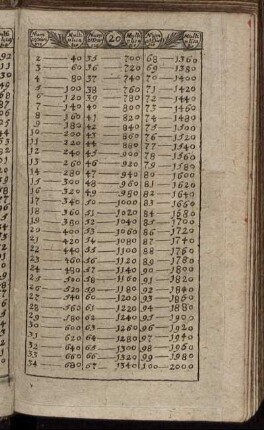 Num Multi Num 20 Multi Num Multi
2 — 40 35 — 700 68 — 1360
3 — 60 36 — 720 69 — 1380
4 — 80 37 — 740 70 — 1400
5 — 100 38 — 760 71 — 1420
6 — 120 39 — 780 72 — 1440
7 — 140 40 — 800 73 — 1460
8 — 160 41 — 820 74 — 1480
9 — 180 42 — 840 75 — 1500
10 — 200 43 — 860 76 — 1520
11 — 220 44 — 880 77 — 1540
12 — 240 45 — 900 78 — 1560
13 — 260 46 — 920 79 — 1580
14 — 280 47 — 940 80 — 1600
15 — 300 48 — 960 81 — 1620
16 — 320 49 — 980 82 — 1640
17 — 340 50 — 1000 83 — 1660
18 — 360 51 — 1020 84 — 1680
19 — 380 52 — 1040 85 — 1700
20 — 400 53 — 1060 86 — 1720
21 — 420 54 — 1080 87 — 1740
22 — 440 55 — 1100 88 — 1760
23 — 460 56 — 1120 89 — 1780
24 — 480 57 — 1140 90 — 1800
25 — 500 58 — 1160 91 — 1820
26 — 520 59 — 1180 92 — 1840
27 — 540 60 — 1200 93 — 1860
28 — 560 61 — 1220 94 — 1880
29 — 580 62 — 1240 95 — 1900
30 — 600 63 — 1260 96 — 1920
31 — 620 64 — 1280 97 — 1940
32 — 640 65 — 1300 98 — 1960
33 — 660 66 — 1320 99 — 1980
34 — 680 67 — 1340 100 — 2000